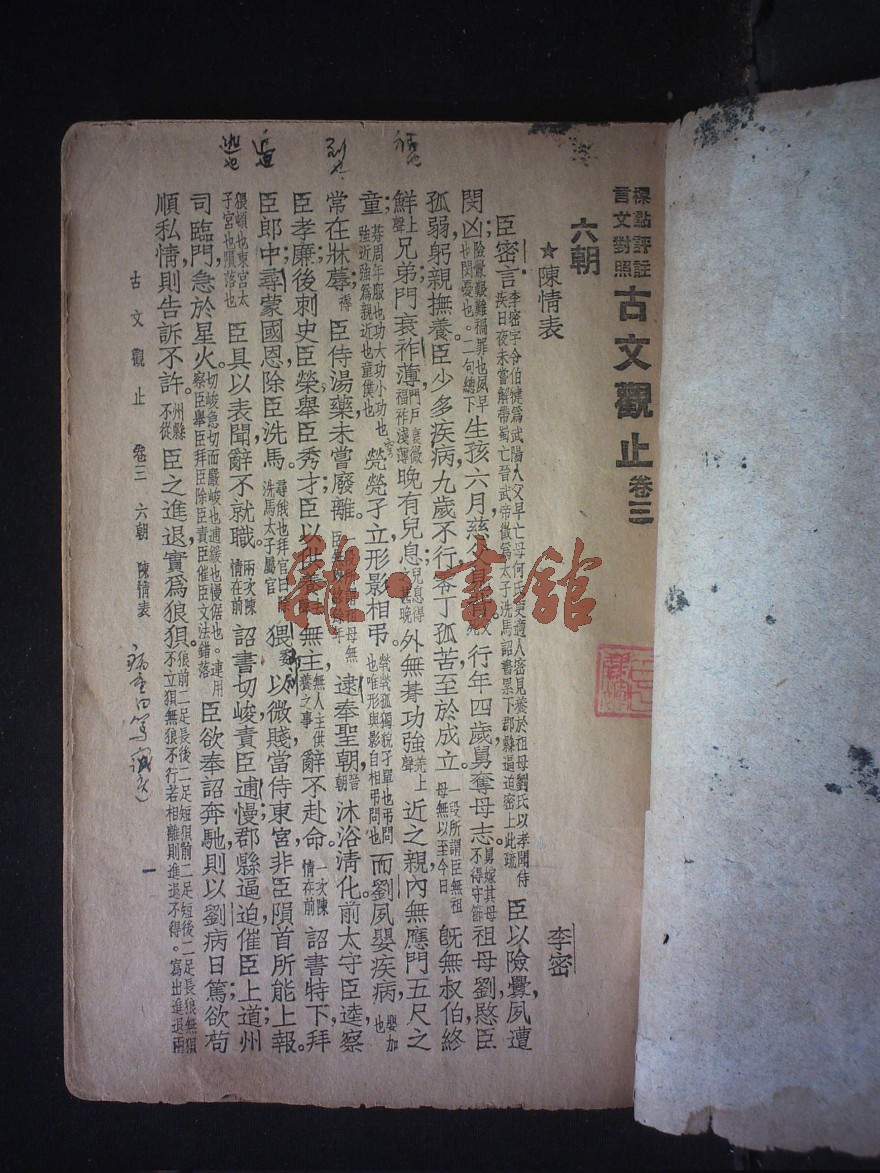 標點評註
言文對照
古文觀止卷三
六朝
★陳情表
李密
臣密言李密字令伯犍爲武陽人父早亡母何氏更適人密見養於祖母劉氏以孝聞侍疾日夜未嘗解帶蜀亡晉武帝徵爲太子洗馬詔書累下郡縣逼迫密上此疏 臣以險釁,夙遭
閔凶;險釁艱難禍罪也夙早也閔憂也。二句總下 生孩六月,慈父見背;行年四歲,舅奪母志。舅嫁其母不得守節 祖母劉愍臣
孤弱,躬親撫養。臣少多疾病,九歲不行,零丁孤苦,至於成立。一段所謂臣無祖母無以至今日 旣無叔伯,終
鮮上聲 兄弟;門衰祚薄,門戶衰微福祚淺薄 晚有兒息。兒息得甚晚 外無朞功強羌上聲 近之親,內無應門五尺之
童;朞周年服也功大功小功也強近強爲親近也童僕也 煢煢孑立,形影相弔。煢煢孤獨貌孑單也弔問也唯形與影自相弔問也 而劉夙嬰疾病,嬰加也
常在牀蓐;臣侍湯藥,未嘗廢離。 逮奉聖朝,晉朝 沐浴清化。前太守臣逵,察
臣孝廉;後刺史臣榮,舉臣秀才。臣以供養無主,無人主供養之事 辭不赴命。一次陳情在前 詔書特下,拜
臣郎中;尋蒙國恩,除臣洗馬。尋俄也拜官曰除洗馬太子屬官 猥以微賤,當侍東宮,非臣隕首所能上報。
猥頓也東宮太子宮也隕落也 臣具以表聞,辭不就職。兩次陳情在前 詔書切峻,責臣逋慢;郡縣逼迫,催臣上道;州
司臨門,急於星火。切峻急切而嚴峻也逋緩也慢倨也。連用察臣舉臣拜臣除臣責臣催臣文法錯落 臣欲奉詔奔馳,則以劉病日篤;欲苟
順私情,則告訴不許。州縣不從 臣之進退,實爲狼狽。狼前二足長後二足短狽前二足短後二足長狼無狽不立狽無狼不行若相離則進退不得。寫出進退兩
古文觀止 卷三 六朝 陳情表 一
雜·書館